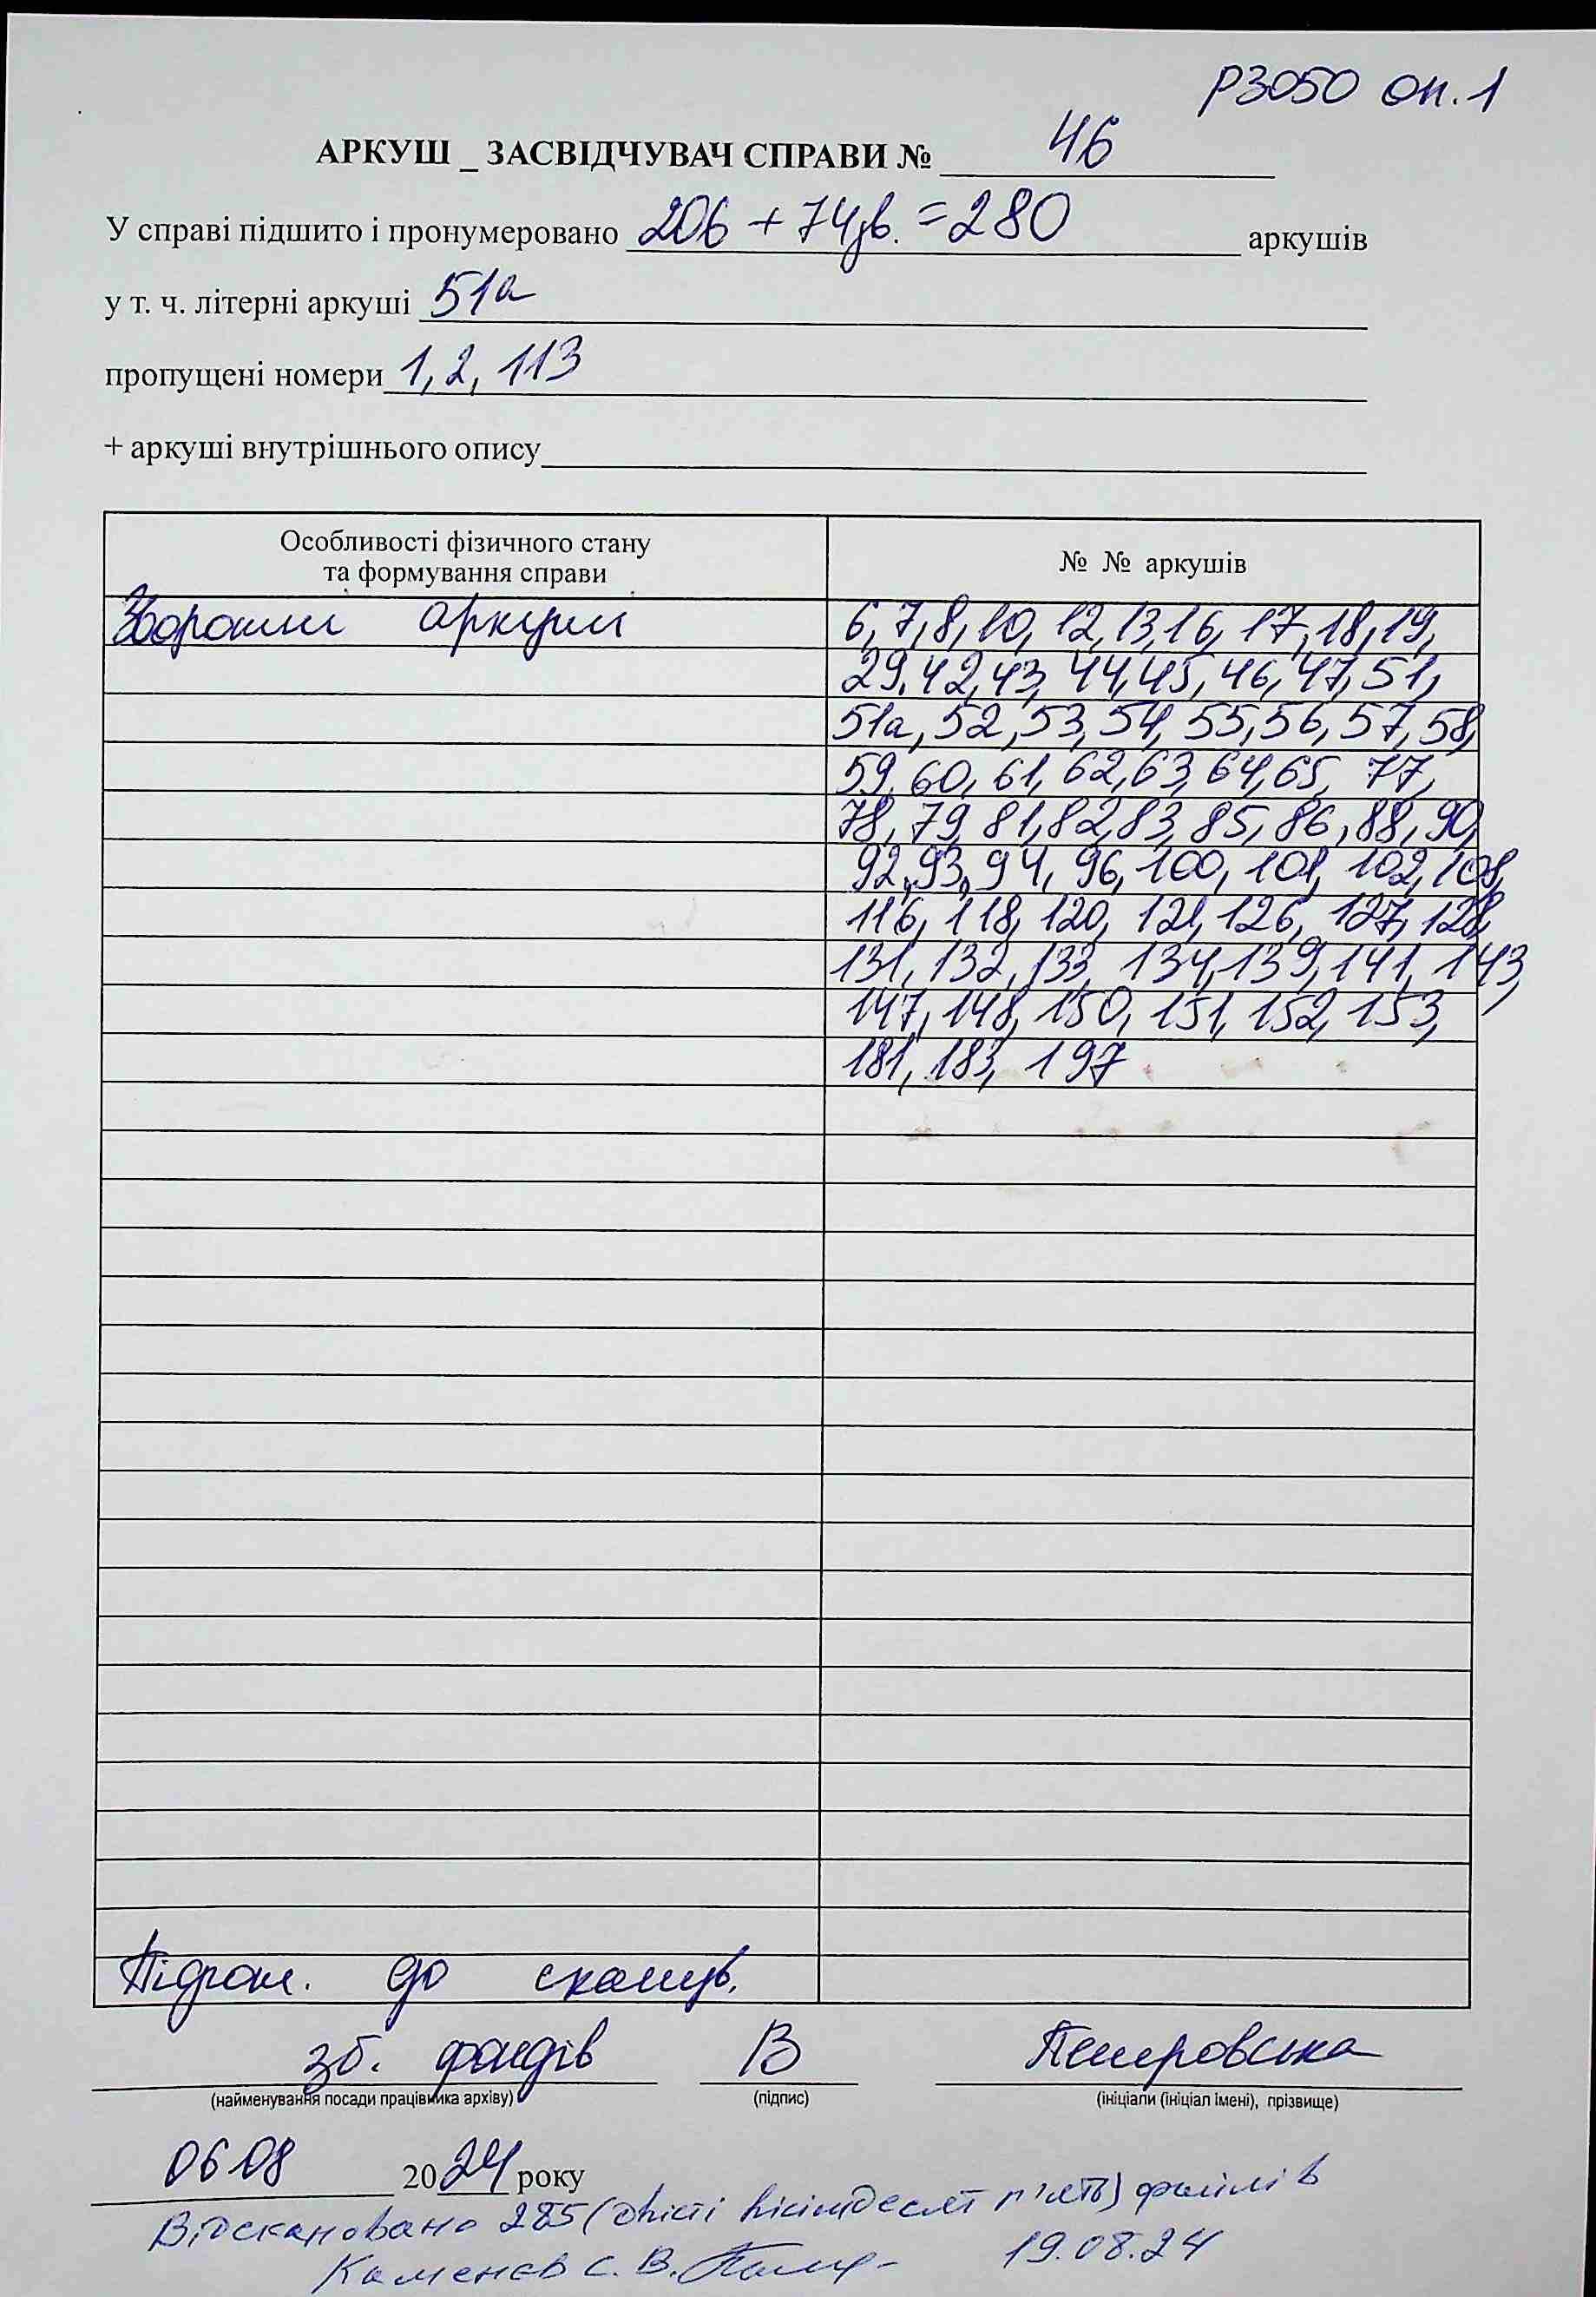 Р3050 оп.1
АРКУШ _ ЗАСВІДЧУВАЧ СПРАВИ № 46
У справі підшито і пронумеровано 206 + 74зв. = 280 аркушів
у т. ч. літерні аркуші 51а
пропущені номери 1, 2, 113
+ аркуші внутрішнього опису
Особливості фізичного стану
та формування справи
№ № аркушів
Зворотні аркуші
6, 7, 8, 10, 12, 13, 16, 17, 18, 19,
29, 42, 43, 44, 45, 46, 47, 51,
51а, 52, 53, 54, 55, 56, 57, 58,
59, 60, 61, 62, 63, 64, 65, 77,
78, 79, 81, 82, 83, 85, 86, 88, 90,
92, 93, 94, 96, 100, 101, 102, 108,
116, 118, 120, 121, 126, 127, 128,
131, 132, 133, 134, 139, 141, 143,
147, 148, 150, 151, 152, 153,
181, 183, 197
Підгот. до сканув.
зб. фондів В Петровська
(найменування посади працівника архіву) (підпис) (ініціали (ініціал імені), прізвище)
06 08 2024 року
Відскановано 285 (двісті вісімдесят п'ять) файлів
Каменєв С. В. 19.08.24